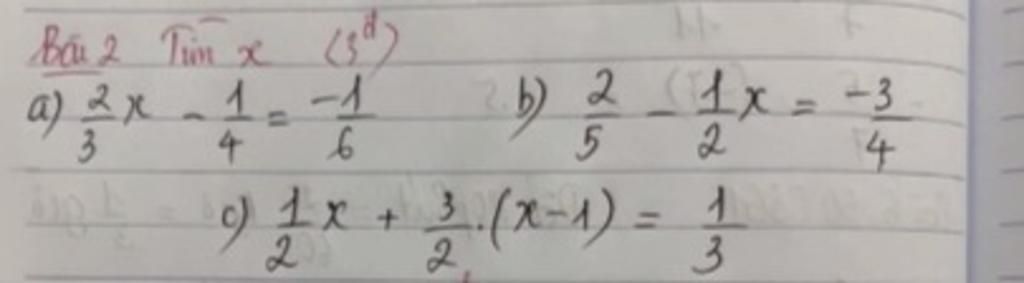 Bài 2 Tìm x (3đ)
a) 2/3 x - 1/4 = -1/6 b) 2/5 - 1/2 x = -3/4
c) 1/2 x + 3/2 . (x-1) = 1/3